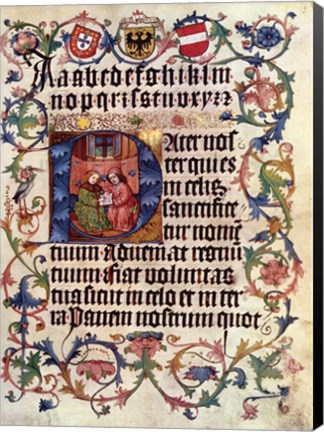 A a a b c d e f g h i k l m
n o p q r ꝛ s ſ t u v x y z ꝛ
PAter noſ
ter qui es
in celis
ſanctifice
tur nomē
tuum adueniat regnū
tuum fiat voluntas
tua ſicut in celo et in ter
ra Panem noſtrum quot